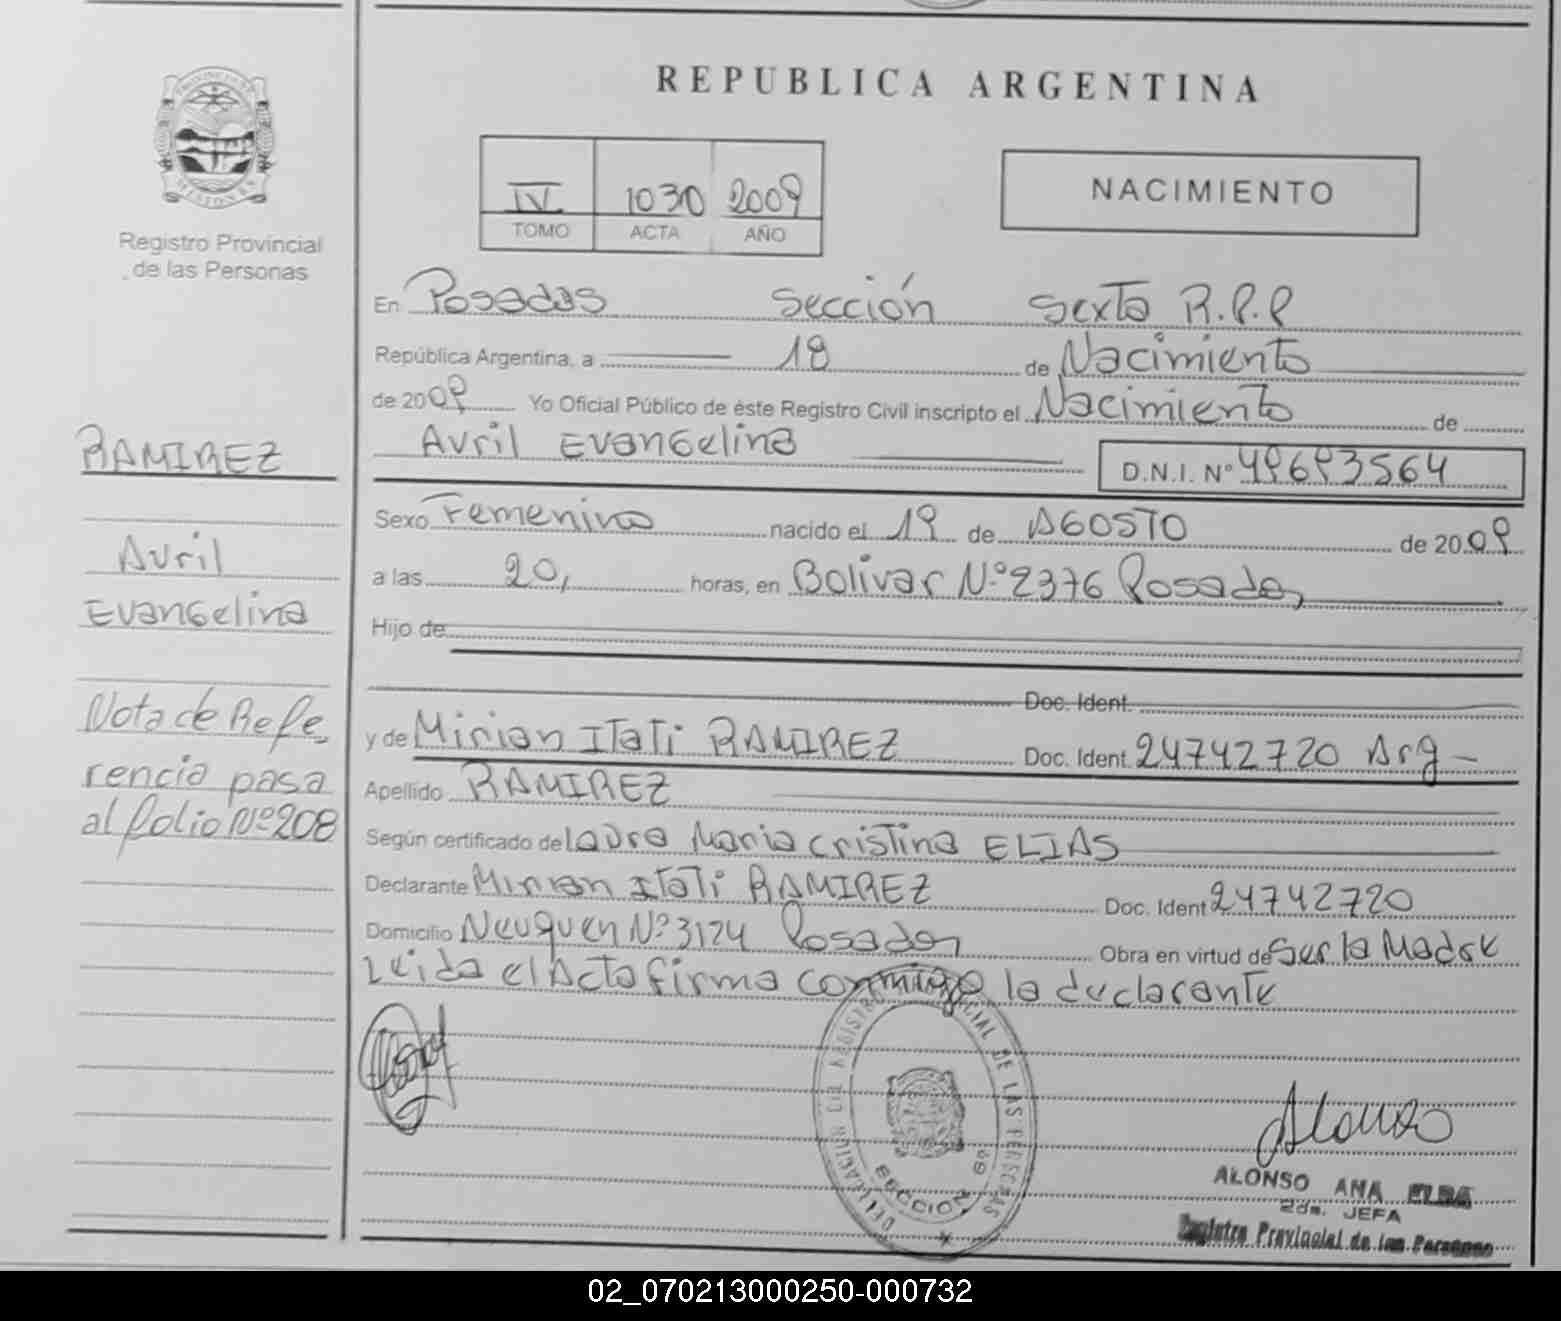 REPUBLICA ARGENTINA
PROVINCIA DE
MISIONES
Registro Provincial
de las Personas
IV 1030 2009
TOMO ACTA AÑO
NACIMIENTO
En Posadas Sección Sexta R.P.P
República Argentina, a 19 de Nacimiento
de 2009 Yo Oficial Público de éste Registro Civil inscripto el Nacimiento de
Avril Evangelina D.N.I. Nº 49693564
RAMIREZ
Sexo Femenino nacido el 19 de AGOSTO de 2009
Avril
a las 20, horas, en Bolivar Nº 2376 Posadas
Evangelina
Hijo de
Doc. Ident.
Nota de Refe
rencia pasa
al folio Nº 208
y de Mirian Itati RAMIREZ Doc. Ident. 24742720 Arg -
Apellido RAMIREZ
Según certificado de Laura Maria Cristina ELIAS
Declarante Mirian Itati RAMIREZ Doc. Ident 24742720
Domicilio Neuquen Nº 3124 Posadas Obra en virtud de Ser la Madre
Leida el Acta firma conmigo la declarante
DELEGACION DEL REGISTRO PROVINCIAL DE LAS PERSONAS
SECCION 6º
Alonso
ALONSO ANA ELBA
2da. JEFA
Registro Provincial de las Personas
02_070213000250-000732